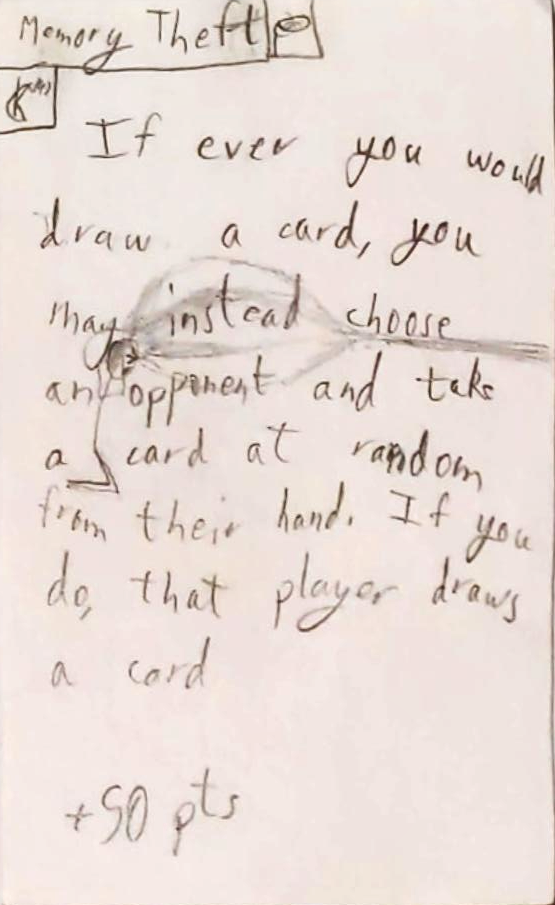 Memory Theft
If ever you would
draw a card, you
may instead choose
an opponent and take
a card at random
from their hand. If you
do, that player draws
a card
+50 pts